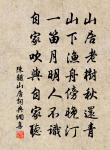 山居老樹秋還青
山下漁舟傍晚汀
一笛月明人不識
自家吹與自家聽
陳繼山居詞與櫚子